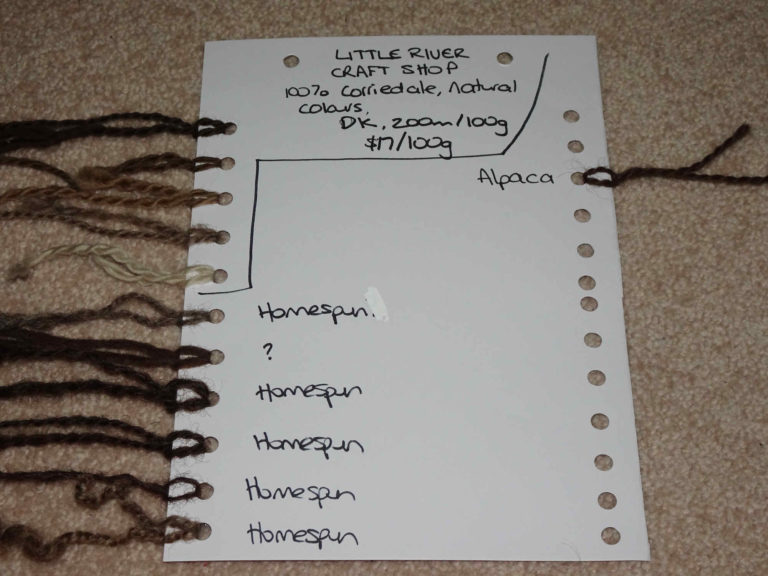 LITTLE RIVER
CRAFT SHOP
100% Corriedale, Natural
colours.
DK, 200m/100g
$17/100g
Alpaca
Homespun.
?
Homespun
Homespun
Homespun
Homespun